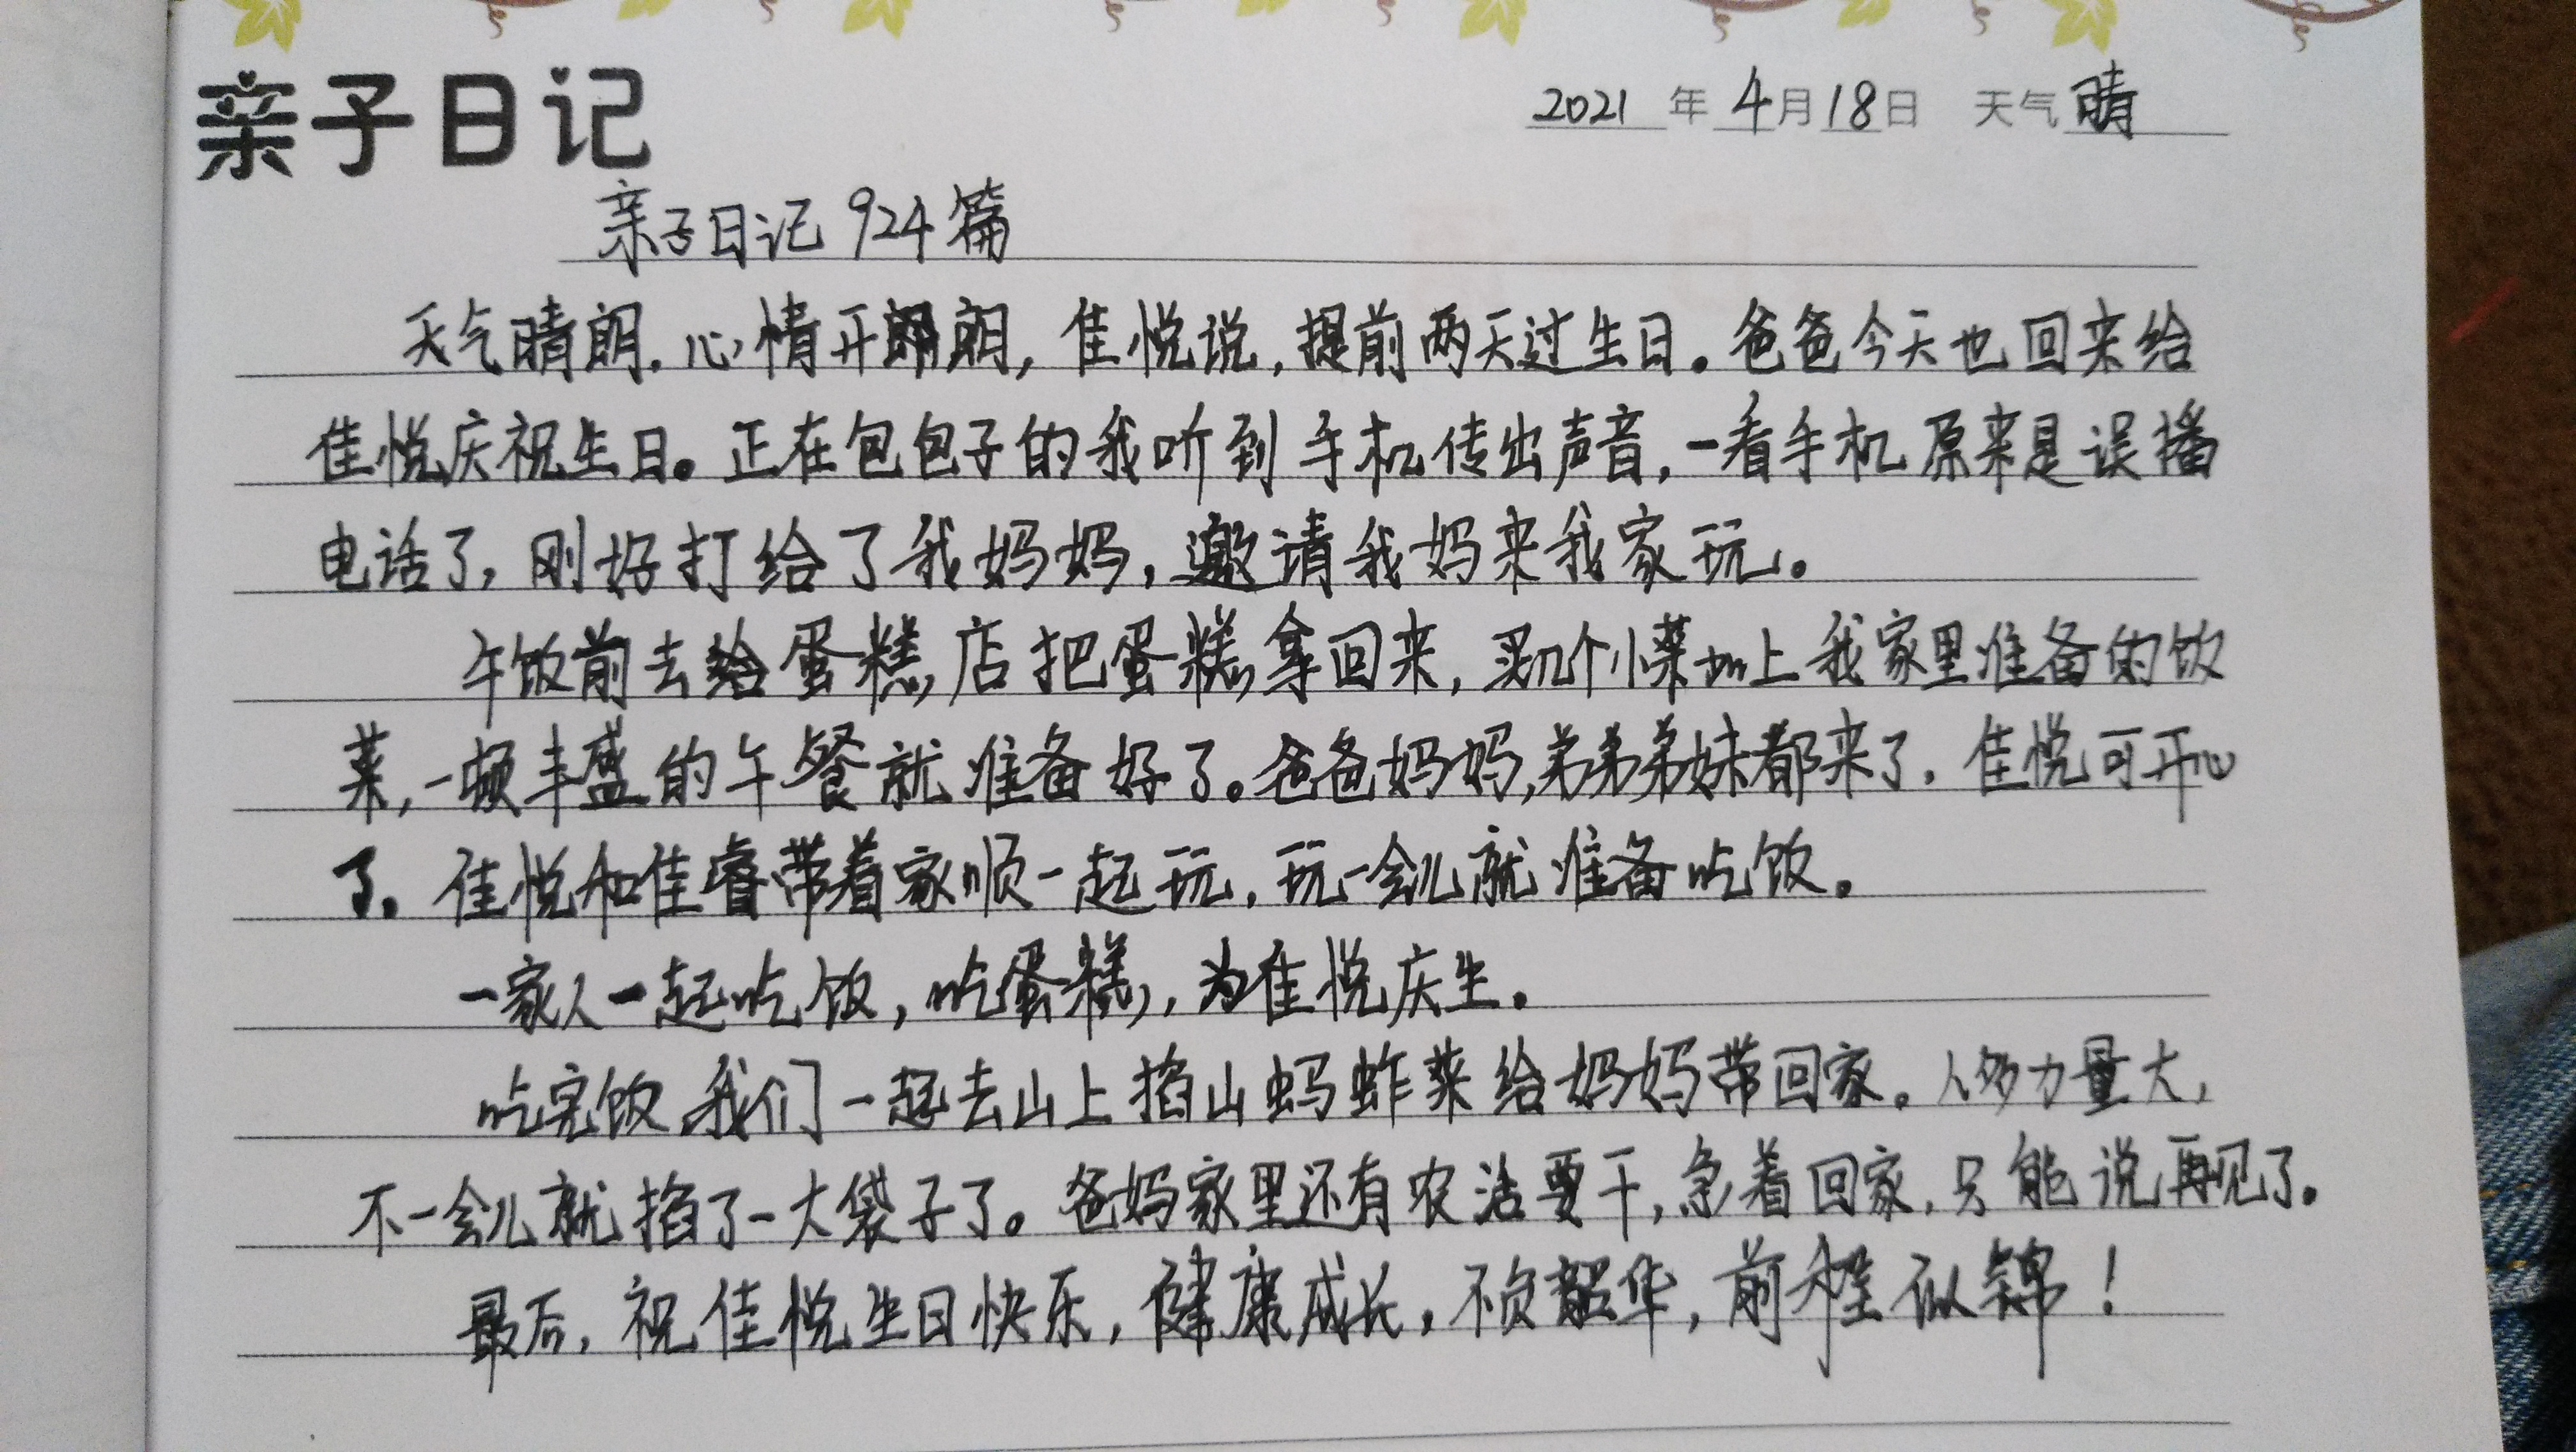 亲子日记
2021年4月18日 天气晴
亲子日记924篇
天气晴朗，心情开朗，佳悦说，提前两天过生日。爸爸今天也回来给
佳悦庆祝生日。正在包包子的我听到手机传出声音，一看手机原来是误播
电话了，刚好打给了我妈妈，邀请我妈来我家玩。
午饭前去给蛋糕店把蛋糕拿回来，买几个小菜加上我家里准备的饭
菜，一顿丰盛的午餐就准备好了。爸爸妈妈，弟弟弟妹都来了，佳悦可开心
了。佳悦和佳睿带着家顺一起玩，玩一会儿就准备吃饭。
一家人一起吃饭，吃蛋糕，为佳悦庆生。
吃完饭，我们一起去山上掐山蚂蚱菜给妈妈带回家。人多力量大，
不一会儿就掐了一大袋子了。爸妈家里还有农活要干，急着回家，只能说再见了。
最后，祝佳悦生日快乐，健康成长，不负韶华，前程似锦！